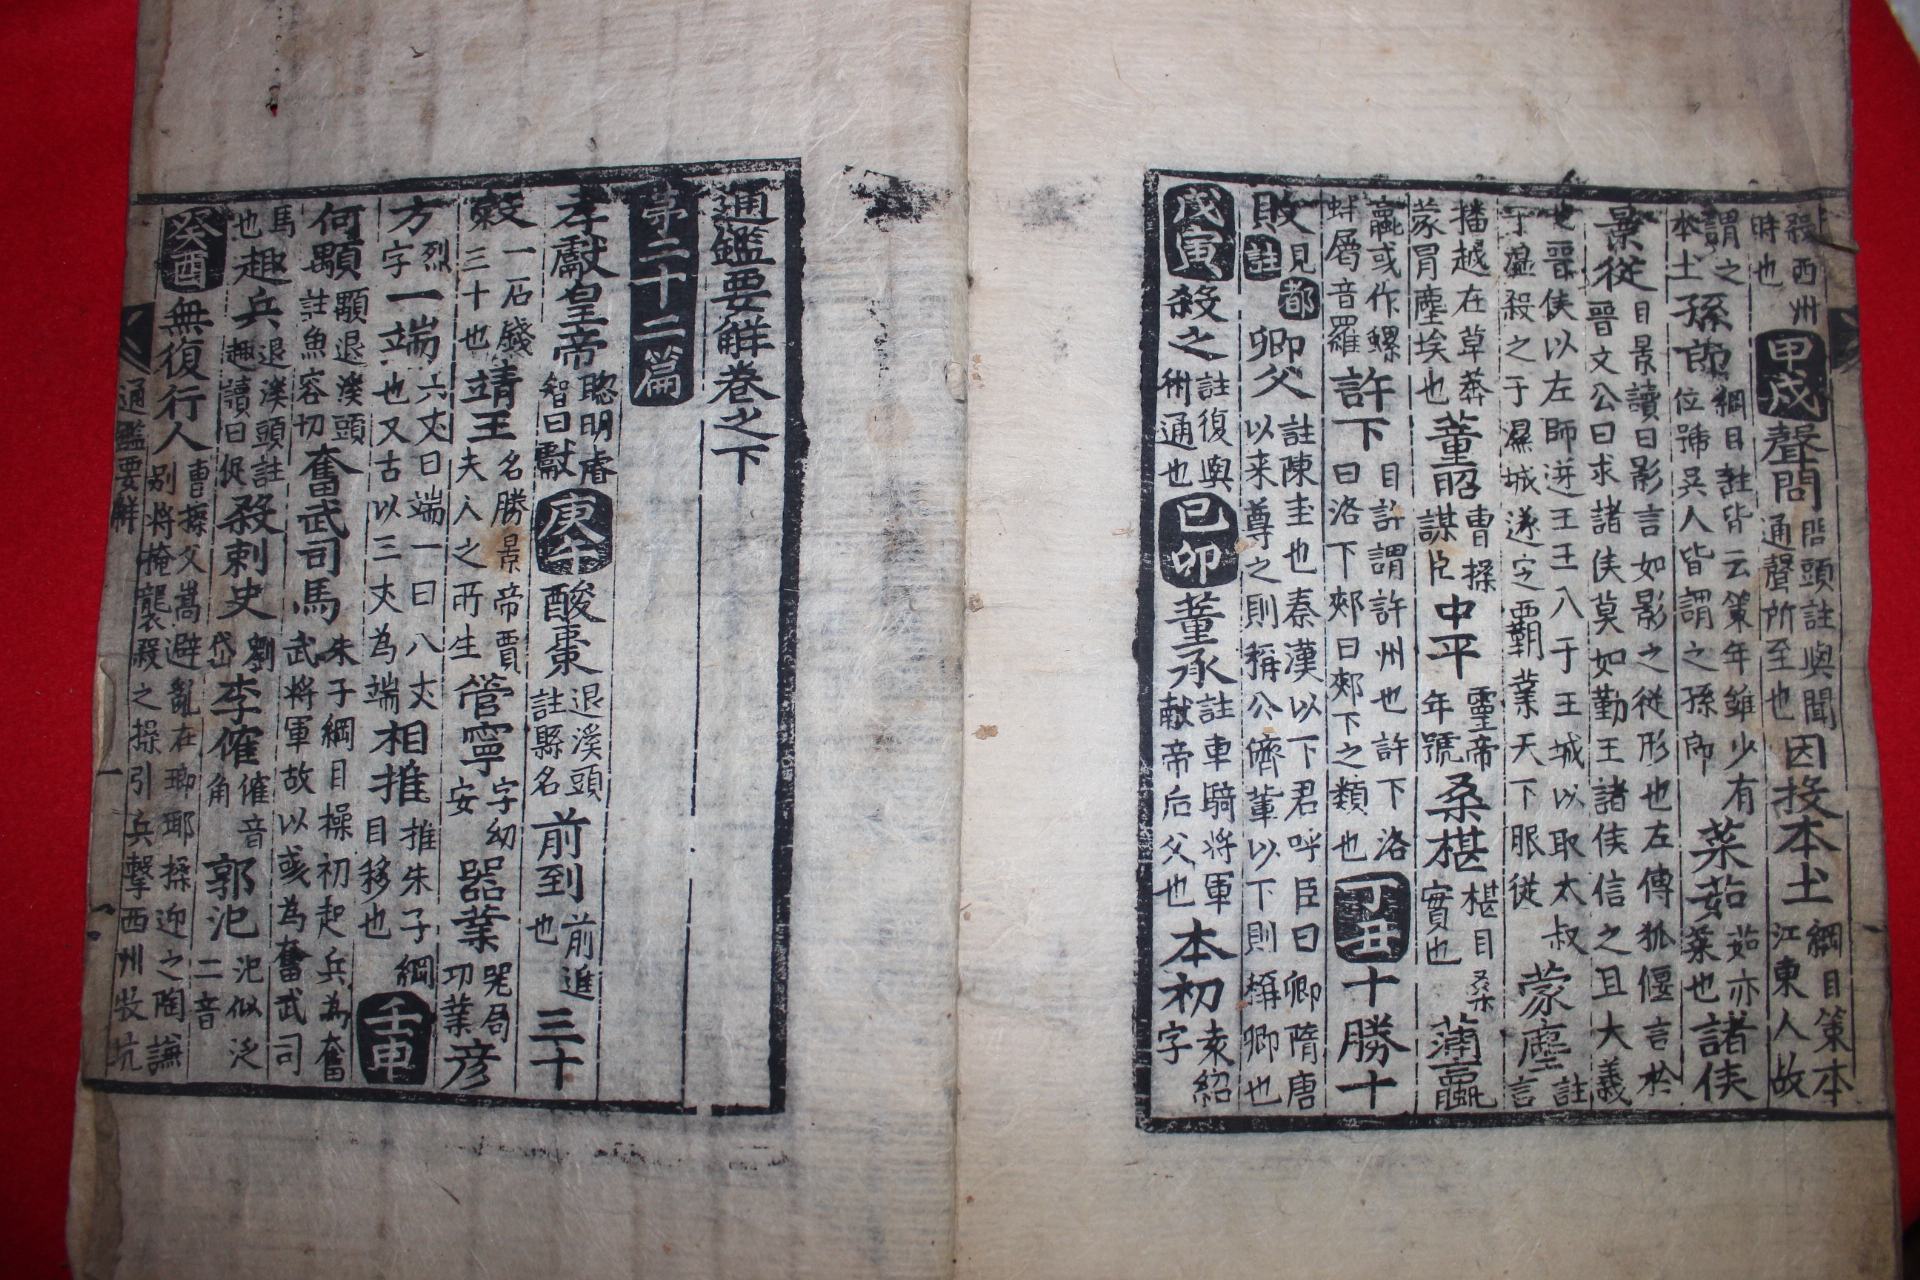 殺西州時也甲戌聲問問頭註與聞通聲所至也因投本土綱目策本江東人故
謂之本土孫郎綱目註皆云策年雖少有位號吳人皆謂之孫郎菜茹茹亦菜也諸侯
景從目景讀曰影言如影之從形也左傳狐偃言於晉文公曰求諸侯莫如勤王諸侯信之且大義
也晉侯以左師逆王王入于王城以取太叔于溫殺之于隰城遂定覇業天下服從蒙塵註言
播越在草莽蒙冒塵埃也董昭曹操謀臣中平靈帝年號桑椹椹目桑實也蒲蠃
蠃或作螺蚌屬音羅許下目許謂許州也許下洛曰洛下郟曰郟下之類也丁丑十勝十
敗見都註卿父註陳圭也秦漢以下君呼臣曰卿隋唐以来尊之則稱公儕輩以下則稱卿也
戊寅殺之註復與術通也己卯董承註車騎将軍献帝后父也本初袁紹字
通鑑要解卷之下
第二十二篇
孝獻皇帝聡明睿智曰獻庚午酸棗退溪頭註縣名前到前進也三十
一石錢三十也靖王名勝景帝賈夫人之所生管寧字幼安器業器局功業彦
方字烈一端六丈曰端一曰八丈也又古以三丈為端相推推朱子綱目移也壬申
何顒顒退溪頭註魚容切奮武司馬朱子綱目操初起兵為奮武將軍故以或為奮武司
馬也趣兵退溪頭註趣讀曰促殺刺史劉岱李傕傕音角郭汜汜似泛二音
癸酉無復行人曹操父嵩避亂在瑯琊操迎之陶謙別將掩襲殺之操引兵擊西州牧坑
通鑑要解